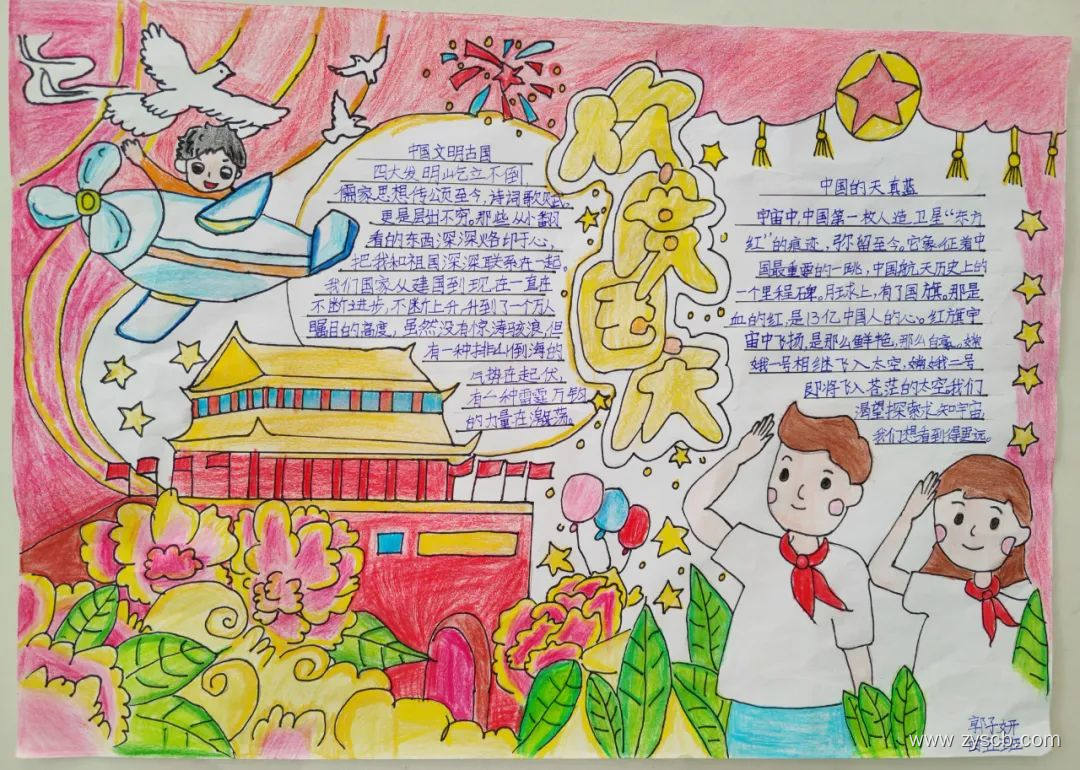 欢度国庆
中国文明古国
四大发明屹立不倒,
儒家思想传颂至今,诗词歌赋,
更是层出不穷。那些从小翻
看的东西深深烙印于心,
把我和祖国深深联系在一起。
我们国家从建国到现在一直在
不断进步,不断上升,升到了一个万人
瞩目的高度,虽然没有惊涛骇浪,但
有一种排山倒海的
气势在起伏,
有一种雷霆万钧
的力量在激荡。
中国的天真蓝
宇宙中,中国第一枚人造卫星“东方
红”的痕迹,弥留至今。它象征着中
国最重要的一跳,中国航天历史上的
一个里程碑。月球上,有了国旗。那是
血的红,是13亿中国人的心。红旗宇
宙中飞扬,是那么鲜艳,那么自豪。嫦
娥一号相继飞入太空,嫦娥二号
即将飞入苍茫的太空。我们
渴望探索求知宇宙
我们想看到得更远。
郭子妍
www.zyscb.com